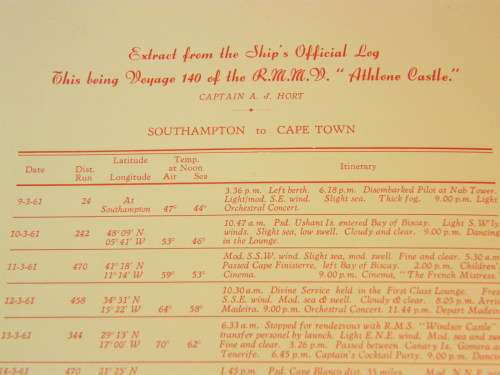 Extract from the Ship's Official Log
This being Voyage 140 of the R.M.M.V. "Athlone Castle."
CAPTAIN A. J. HORT
SOUTHAMPTON to CAPE TOWN
Date Dist. Run Latitude Longitude Temp. at Noon Air Sea Itinerary
9-3-61 24 At Southampton 47° 44° 3.36 p.m. Left berth. 6.18 p.m. Disembarked Pilot at Nab Tower.
Light/mod. S.E. wind. Slight sea. Thick fog. 9.00 p.m. Light
Orchestral Concert.
10-3-61 242 48° 09' N 05° 41' W 53° 46° 10.47 a.m. Psd. Ushant Is. entered Bay of Biscay. Light S.W'ly
winds. Slight sea, low swell. Cloudy and clear. 9.00 p.m. Dancing
in the Lounge.
11-3-61 470 41° 18' N 11° 14' W 59° 53° Mod. S.S.W. wind. Slight sea, mod. swell. Fine and clear. 5.30 a.m.
Passed Cape Finisterre, left Bay of Biscay. 2.00 p.m. Children'
Cinema. 9.00 p.m. Cinema, "The French Mistress.
12-3-61 458 34° 31' N 15° 22' W 64° 58° 10.30 a.m. Divine Service held in the First Class Lounge. Fres
S.S.E. wind. Mod. sea & swell. Cloudy & clear. 8.05 p.m. Arri
Madeira. 9.00 p.m. Orchestral Concert. 11.44 p.m. Depart Madeir
13-3-61 344 29° 13' N 17° 00' W 70° 62° 6.33 a.m. Stopped for rendezvous with R.M.S. "Windsor Castle"
transfer personnel by launch. Light E.N.E. wind. Mod. sea and sw
Fine and clear. 3.26 p.m. Passed between Canary Is. Gomara an
Tenerife. 6.45 p.m. Captain's Cocktail Party. 9.00 p.m. Dance
14-3-61 470 21° 25' N 1.45 p.m. Psd. Cape Blanco dist. 35 miles. Mod. N.N.E.